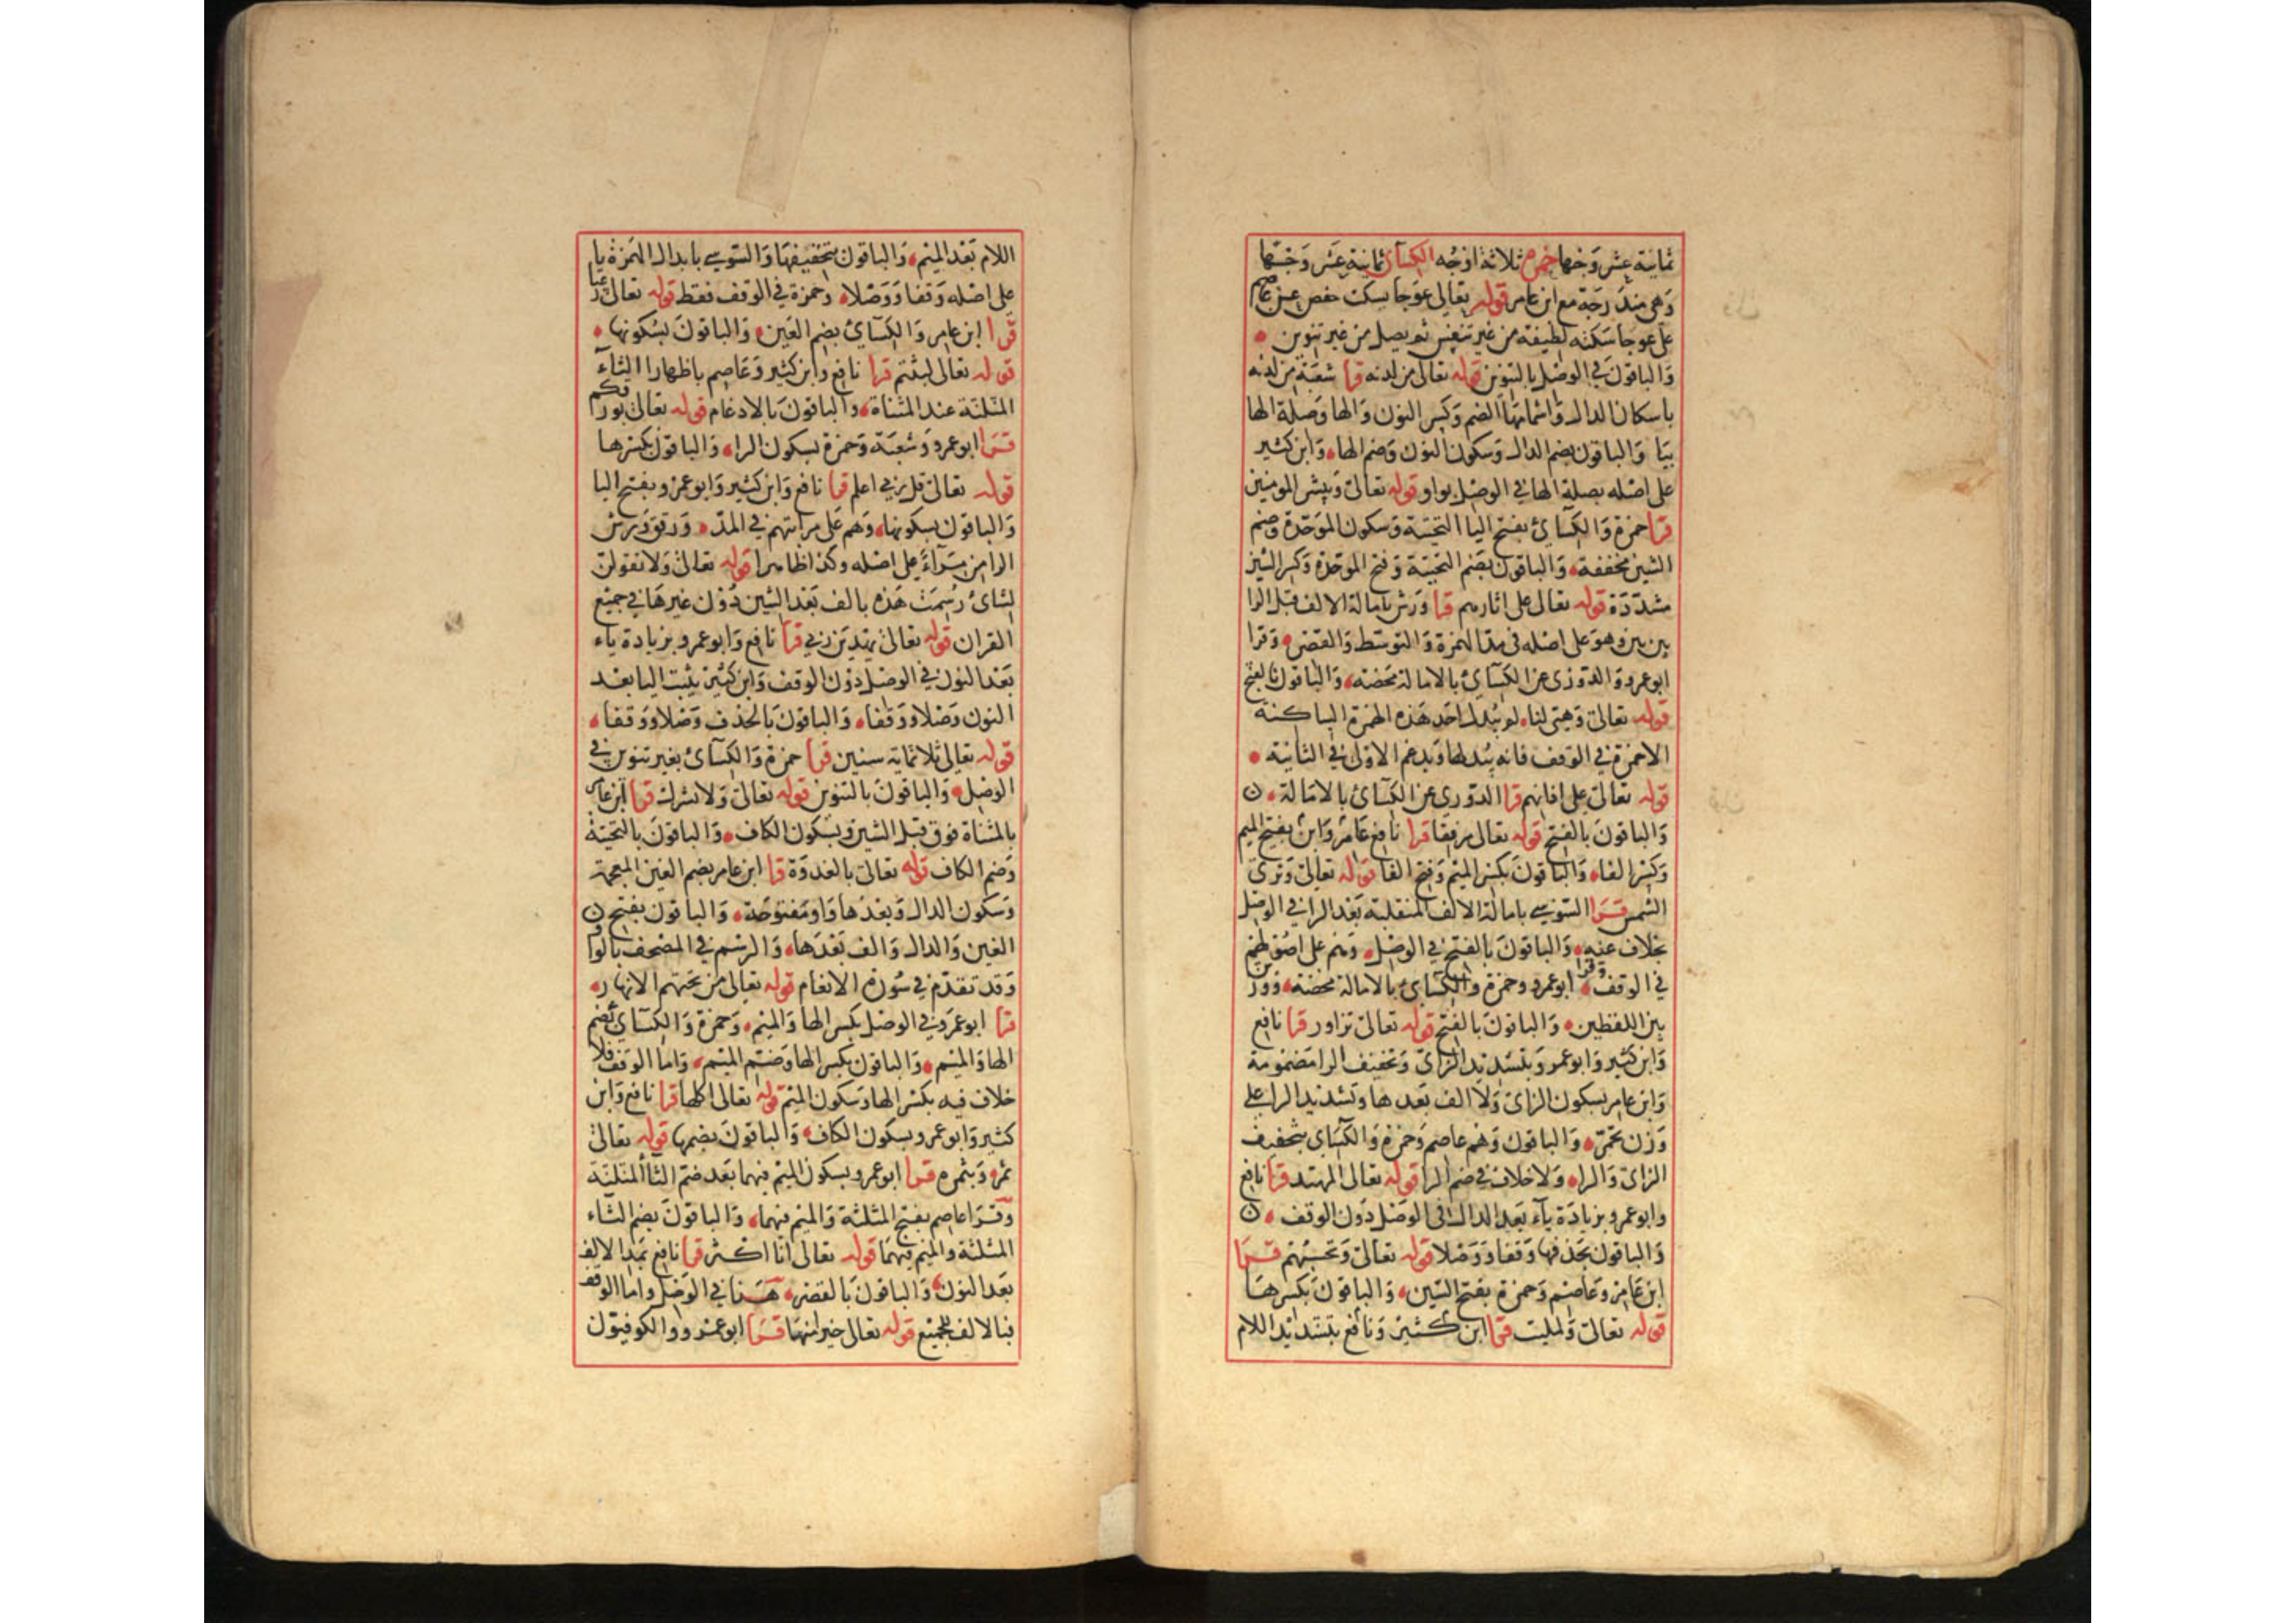 ثمانية عشر وجها حمزة ثلاثة اوجه الكسآئ ثمانية عشر وجها
وهى مندرجة مع ابن عامر قوله تعالى عوجا يسكت حفص عن عاصم
على عوجا سكته لطيفه من غير تنفس ثم يصل من غير تنوين
والباقون في الوصل بالتنوين قوله تعالى من لدنه قرا شعبة من لدنه
باسكان الدال واشمامها الضم وكسر النون والها وصلة الها
بيا والباقون بضم الدال وسكون النون وضم الها وابن كثير
على اصله بصلة الها في الوصل بواو قوله تعالى ويبشر المومنين
قرا حمزة والكسائ بفتح اليا التحتية وسكون الموحدة وضم
الشين مخففة والباقون بضم التحتية وفتح الموحدة وكسر الشين
مشددة قوله تعالى على اثارهم قرا ورش بامالة الالف قبل الرا
بين بين وهو على اصله فى مد الهمزة والتوسط والقصر وقرا
ابو عمرو والدوزى عن الكسآئ بالامالة محضة والباقون بالفتح
قوله تعالى وهيئ لنا لم يبدل احد هذه الهمزة الساكنة
الا حمزة في الوقف فانه يبدلها ويدغم الاولى في الثانية
قوله تعالى على اذانهم قرا الدوري عن الكسآئ بالامالة
والباقون بالفتح قوله تعالى مرفقا قرا نافع عامر وابن بفتح الميم
وكسر الفاء والباقون بكسر الميم وفتح الفا قوله تعالى وترى
الشمس قرا السوسي بامالة الالف المنقلبة بعد الرا في الوصل
بخلاف عنه والباقون بالفتح في الوصل وهم على اصولهم
في الوقف وقرا ابو عمرو وحمزة والكسآئ بالامالة محضة وورش
بين اللفظين والباقون بالفتح قوله تعالى تزاور قرا نافع
وابن كثير وابو عمرو وبتشديد الزاى وتخفيف الرا مضمومة
وابن عامر بسكون الزاى ولا الف بعدها وتشديد الرا على
وزن تحمر والباقون وهم عاصم وحمزة والكسآى بتخفيف
الزاى والراء ولا خلاف في ضم الرا قوله تعالى المهتد قرا نافع
وابو عمرو بزيادة يآء بعد الدال فى الوصل دون الوقف
والباقون بحذفها وقفا ووصلا قوله تعالى وتحسبهم قرا
ابن عامر وعاصم وحمزة بفتح السين والباقون بكسرها
قوله تعالى ولمليت قرا ابن كثير ونافع بتشديد اللام
اللام بعد الميم والباقون بتخفيفها والسوسي بابدال الهمزة يا
على اصله وقفا ووصلا وحمزة في الوقف فقط قوله تعالى رعبا
قرا ابن عامر والكسآئ بضم العين والباقون بسكونها
قوله تعالى لبثتم قرا نافع وابن كثير وعاصم باظهار الثاء
المثلثة عند المثناة والباقون بالادغام قوله تعالى بورقكم
قرا ابو عمرو وشعبة وحمزة بسكون الراء والباقون بكسرها
قوله تعالى قل ربي اعلم قرا نافع وابن كثير وابو عمرو بفتح اليا
والباقون بسكونها وهم على مراتبهم في المد ورقق ورش
الرا من مرآء على اصله وكذا ظاهرا قوله تعالى ولا تقولن
لشائ رسمت هذه بالف بعد الشين دون غيرها في جميع
القران قوله تعالى يهدين ربي قرا نافع وابو عمرو بزيادة ياء
بعد النون في الوصل دون الوقف وابن كثير يثبت اليا بعد
النون وصلا ووقفا والباقون بالحذف وصلا ووقفا
قوله تعالى ثلاثماية سنين قرا حمزة والكسآئ بغير تنوين في
الوصل والباقون بالتنوين قوله تعالى ولا تشرك قرا ابن عامر
بالمثناة فوق قبل الشين وبسكون الكاف والباقون بالتحتية
وضم الكاف قوله تعالى بالغدوة قرا ابن عامر بضم الغين المعجمة
وسكون الدال وبعدها واو مفتوحة والباقون بفتح
الغين والدال والف بعدها والرسم في المصحف بالواو
وقد تقدم في سورة الانعام قوله تعالى من تحتهم الانهار
قرا ابو عمرو في الوصل بكسر الها والميم وحمزة والكسآي بضم
الها والميم والباقون بكسر الها وضم الميم واما الوقف فلا
خلاف فيه بكسر الها وسكون الميم قوله تعالى اكلها قرا نافع وابن
كثير وابو عمرو بسكون الكاف والباقون بضمها قوله تعالى
ثمر وبثمره قرا ابو عمرو بسكون الميم فيهما بعد ضم الثا المثلثة
وقرا عاصم بفتح المثلثة والميم فيهما والباقون بضم الثاء
المثلثة والميم فيهما قوله تعالى انا اكثر قرا نافع بمد الالف
بعد النون والباقون بالقصر هنا في الوصل واما الوقف
فبالالف للجميع قوله تعالى خيرا منها قرا ابو عمرو والكوفيون